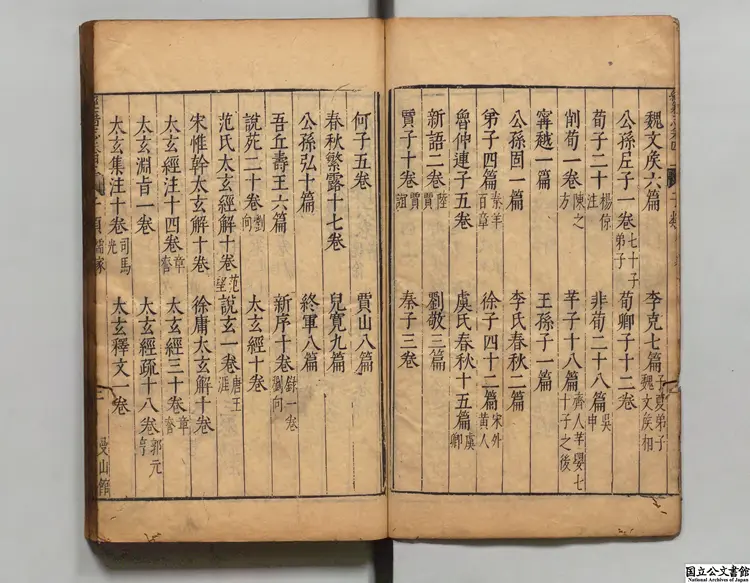 魏文矦六篇 李克七篇 子夏弟子魏文矦相
公孫𡉄子一卷 七十子弟子 荀卿子十二卷
荀子二十 楊倞注 非荀二十八篇 吳申
削荀一卷 陳之方 芊子十八篇 齊人芊嬰七十子之後
甯越一篇 王孫子一篇
公孫固一篇 李氏春秋二篇
弟子四篇 秦羊百章 徐子四十二篇 宋外黃人
魯仲連子五卷 虞氏春秋十五篇 虞卿
新語二卷 陸賈 劉敬三篇
賈子十卷 賈誼 秦子三卷
何子五卷 賈山八篇
春秋繁露十七卷 兒寛九篇
公孫弘十篇 終軍八篇
吾丘壽王六篇 新序十卷 録一卷劉向
說苑二十卷 劉向 太玄經十卷
范氏太玄經解十卷 范望 說玄一卷 唐王涯
宋惟幹太玄解十卷 徐庸太玄解十卷
太玄經注十四卷 章詧 太玄經三十卷 章詧
太玄淵旨一卷 太玄經疏十八卷 郭元亨
太玄集注十卷 司馬光 太玄釋文一卷
子類 儒家
曼山館
国立公文書館
National Archives of Japan